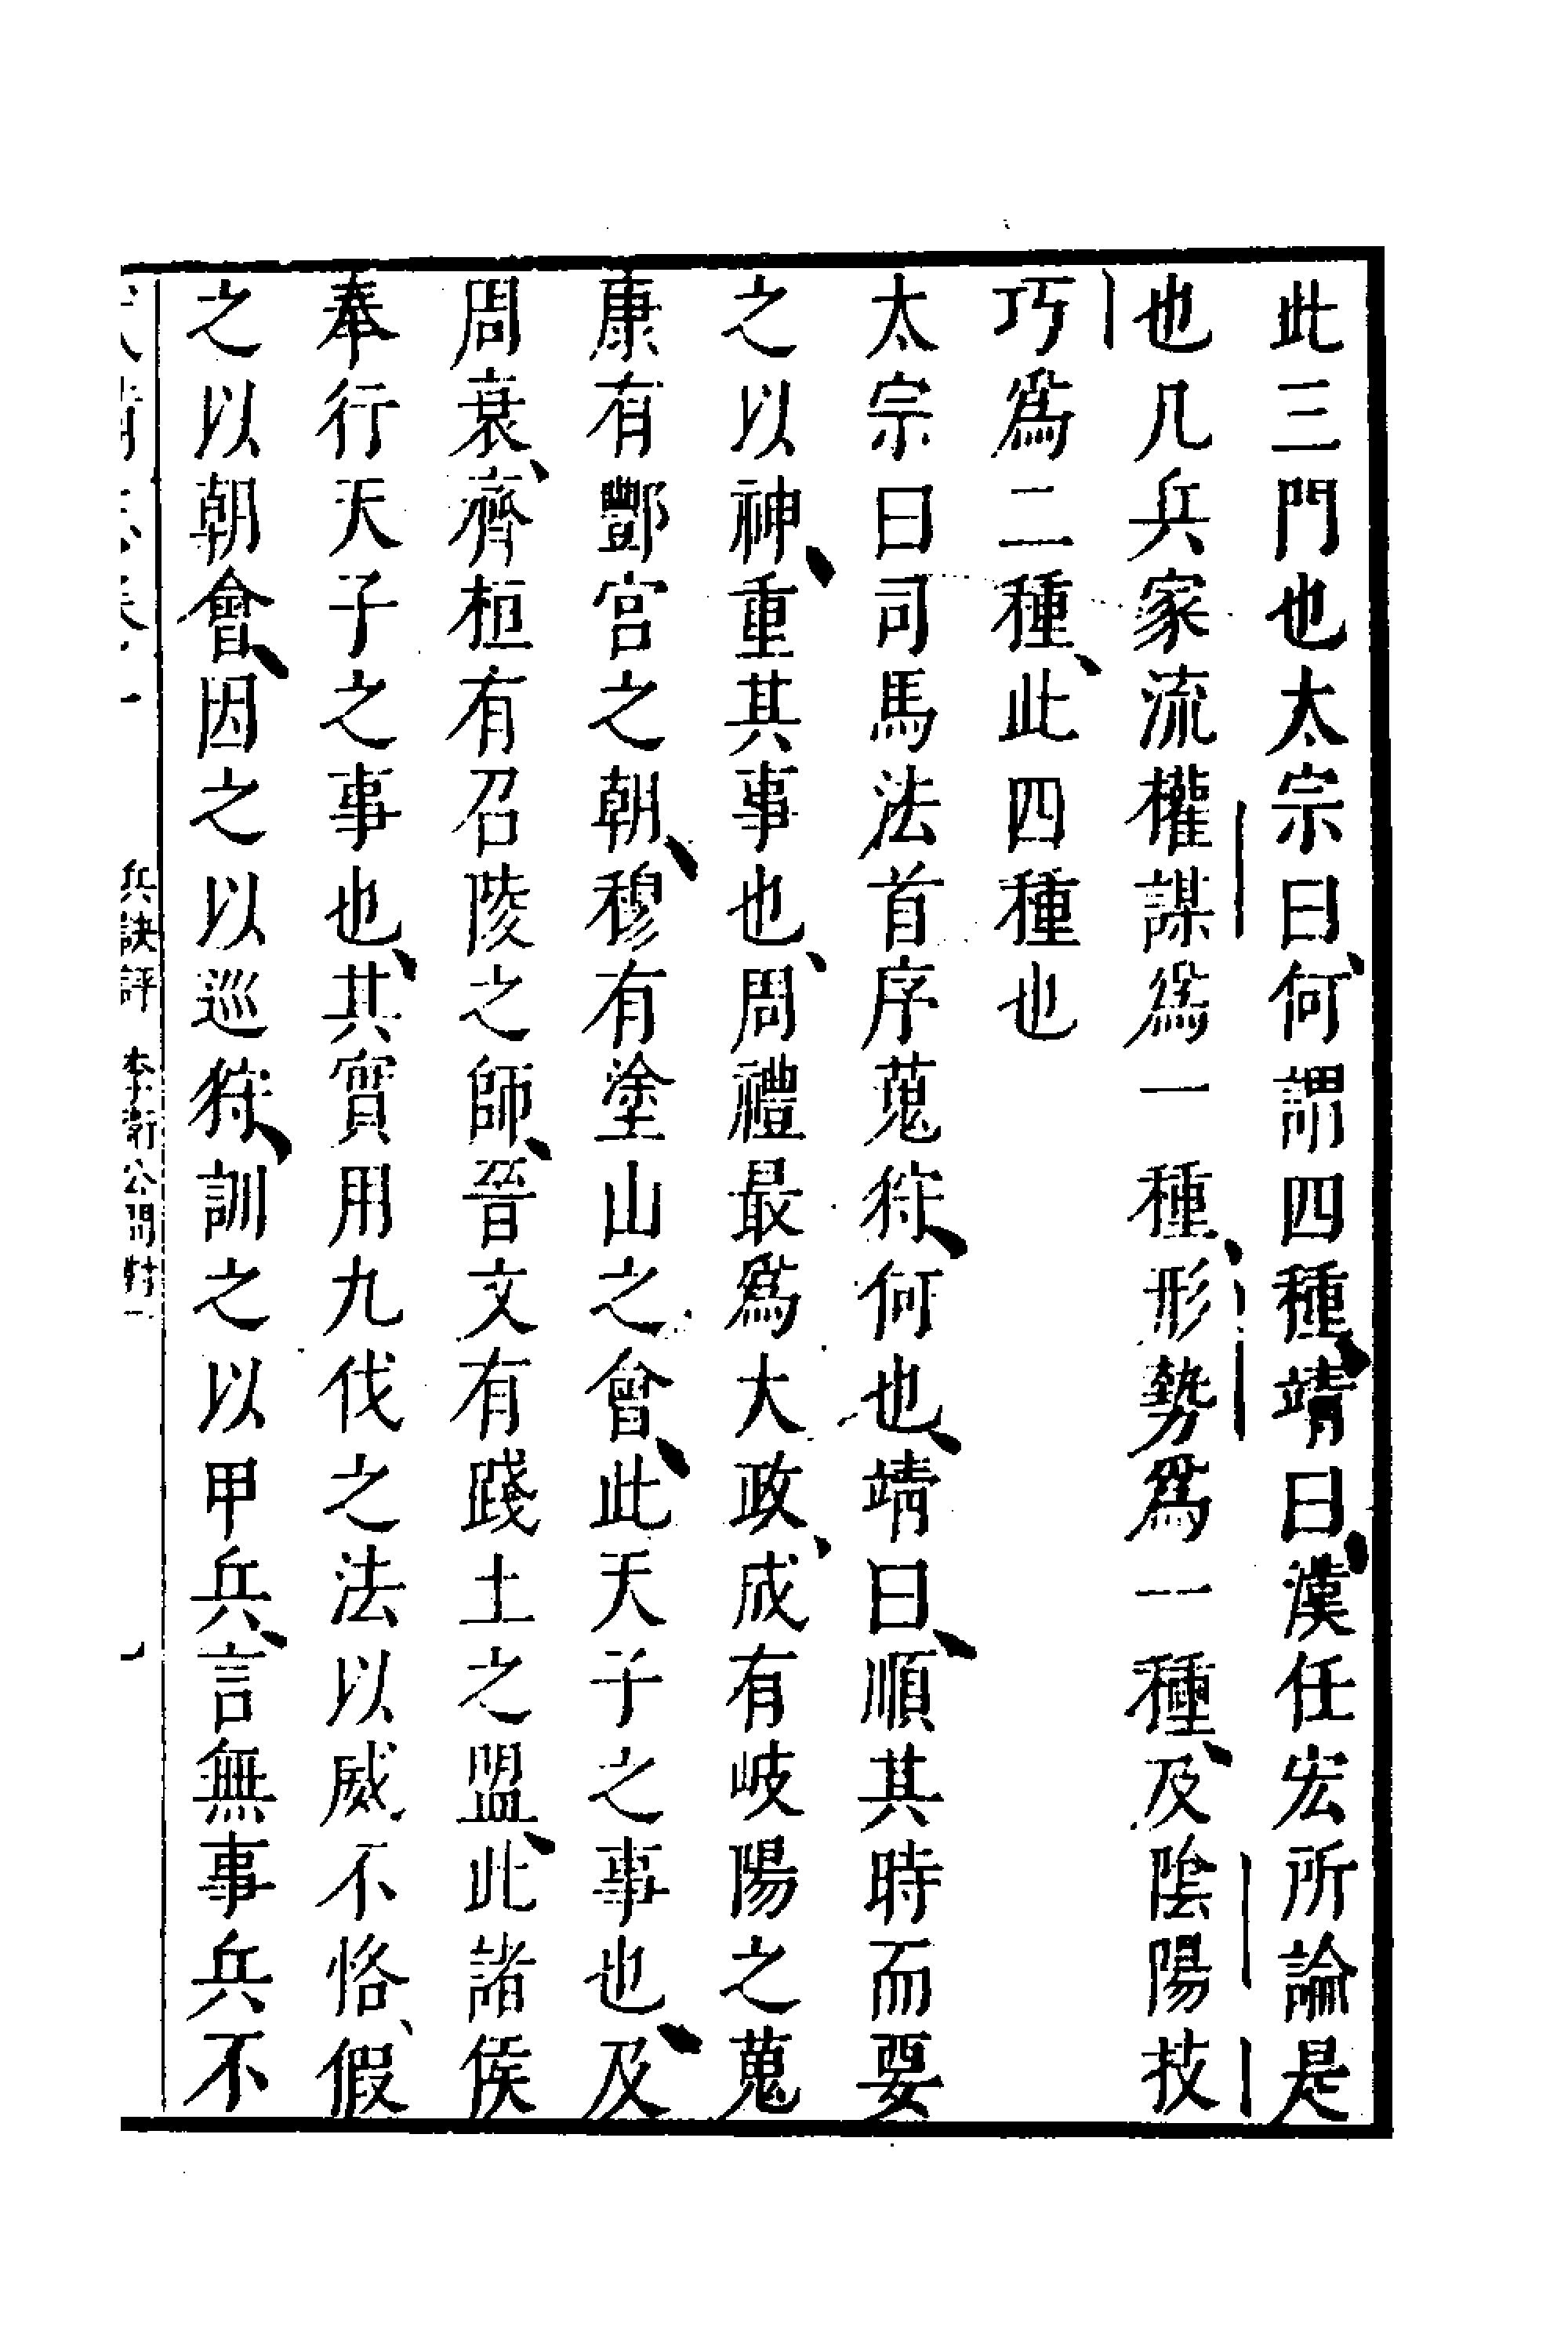 此三門也太宗曰何謂四種靖曰漢任宏所論是
也凡兵家流權謀爲一種形勢爲一種及陰陽技
巧爲二種此四種也
太宗曰司馬法首序蒐狩何也靖曰順其時而要
之以神重其事也周禮最爲大政成有岐陽之蒐
康有酆宮之朝穆有塗山之會此天子之事也及
周衰齊桓有召陵之師晉文有踐土之盟此諸侯
奉行天子之事也其實用九伐之法以威不恪假
之以朝會因之以巡狩訓之以甲兵言無事兵不
兵訣評 李衛公問對一